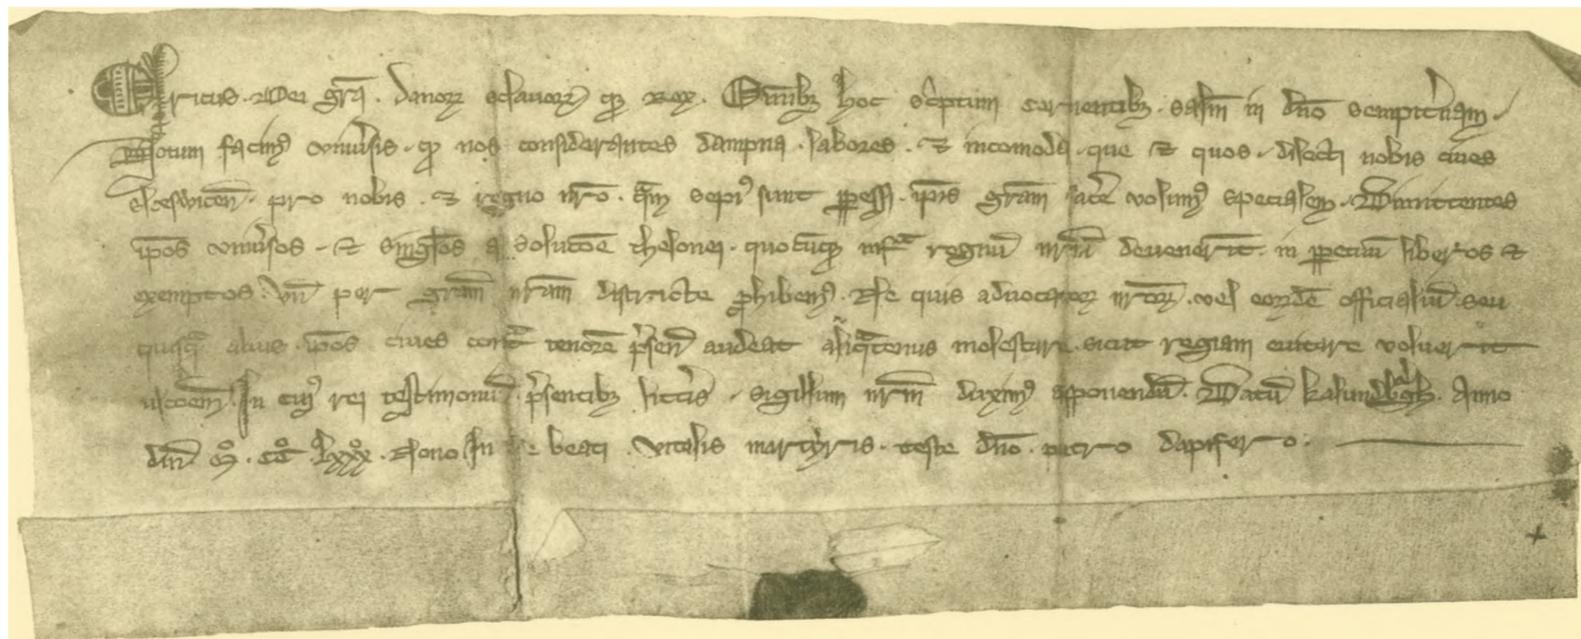 Ericus. Dei gr̄a. danoꝝ sclauoꝝ qꝫ Rex. Om̄ibꝫ hoc sc͛ptum cernentibꝫ. sal̄m in dn̄o sempit͛nam.
Notum facimꝰ vniu͛sis. ꝙ nos considerantes dampna. labores. ⁊ incomoda. que ⁊ quos. dilecti nobis ciues
sleswicen̄. pro nobis. ⁊ regno nr̄o. sepiꝰ sunt ꝑpessi. ip̄is gr̄am facē volumꝰ specialem. Dimittentes
ip̄os vniu͛sos. ⁊ singl̄os a solutōe thelonei. quocūqꝫ infᵃ regnū nr̄um deuener̄it. in ꝑpetuū liberos ⁊
exemptos. vn̄ per gr̄am nr̄am districte ꝓhibemꝰ. Ne quis aduocatoꝝ nr̄oꝝ. vel eorūdē officialiū. seu
quisqᵃ alius. ip̄os ciues contᵃ tenorē p͛senc̄ audeat aliqᵃtenus molestare. sicut regiam euitare voluerit
vlc̄oem. In cuiꝰ rei testimoniū. p͛sentibꝫ litt͛is. sigillum nr̄m duximꝰ apponendū. Datū kalundbᵃgh. Anno
dn̄i M̊. cc̊. lxxx̊. Nono In die beati. vitalis martyris. teste dn̄o. petro dapifero.